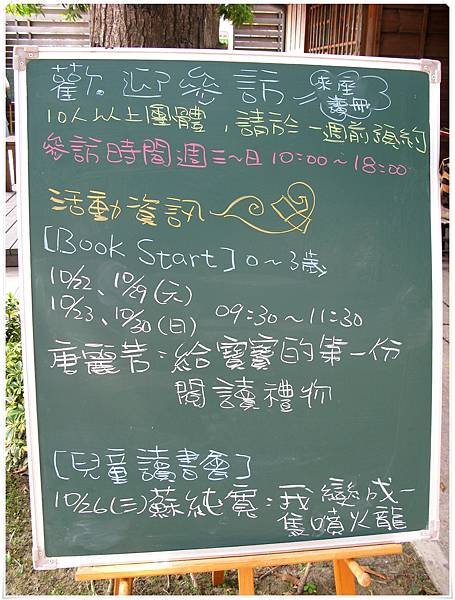 歡迎參訪
來座
讀冊
10人以上團體，請於一週前預約
參訪時間週三～日 10:00～18:00
活動資訊
[Book Start] 0～3歲
10/22、10/29(六)
10/23、10/30(日) 09:30～11:30
唐麗芳：給寶寶的第一份
閱讀禮物
[兒童讀書會]
10/26(三)蘇純寬：我變成一
隻噴火龍